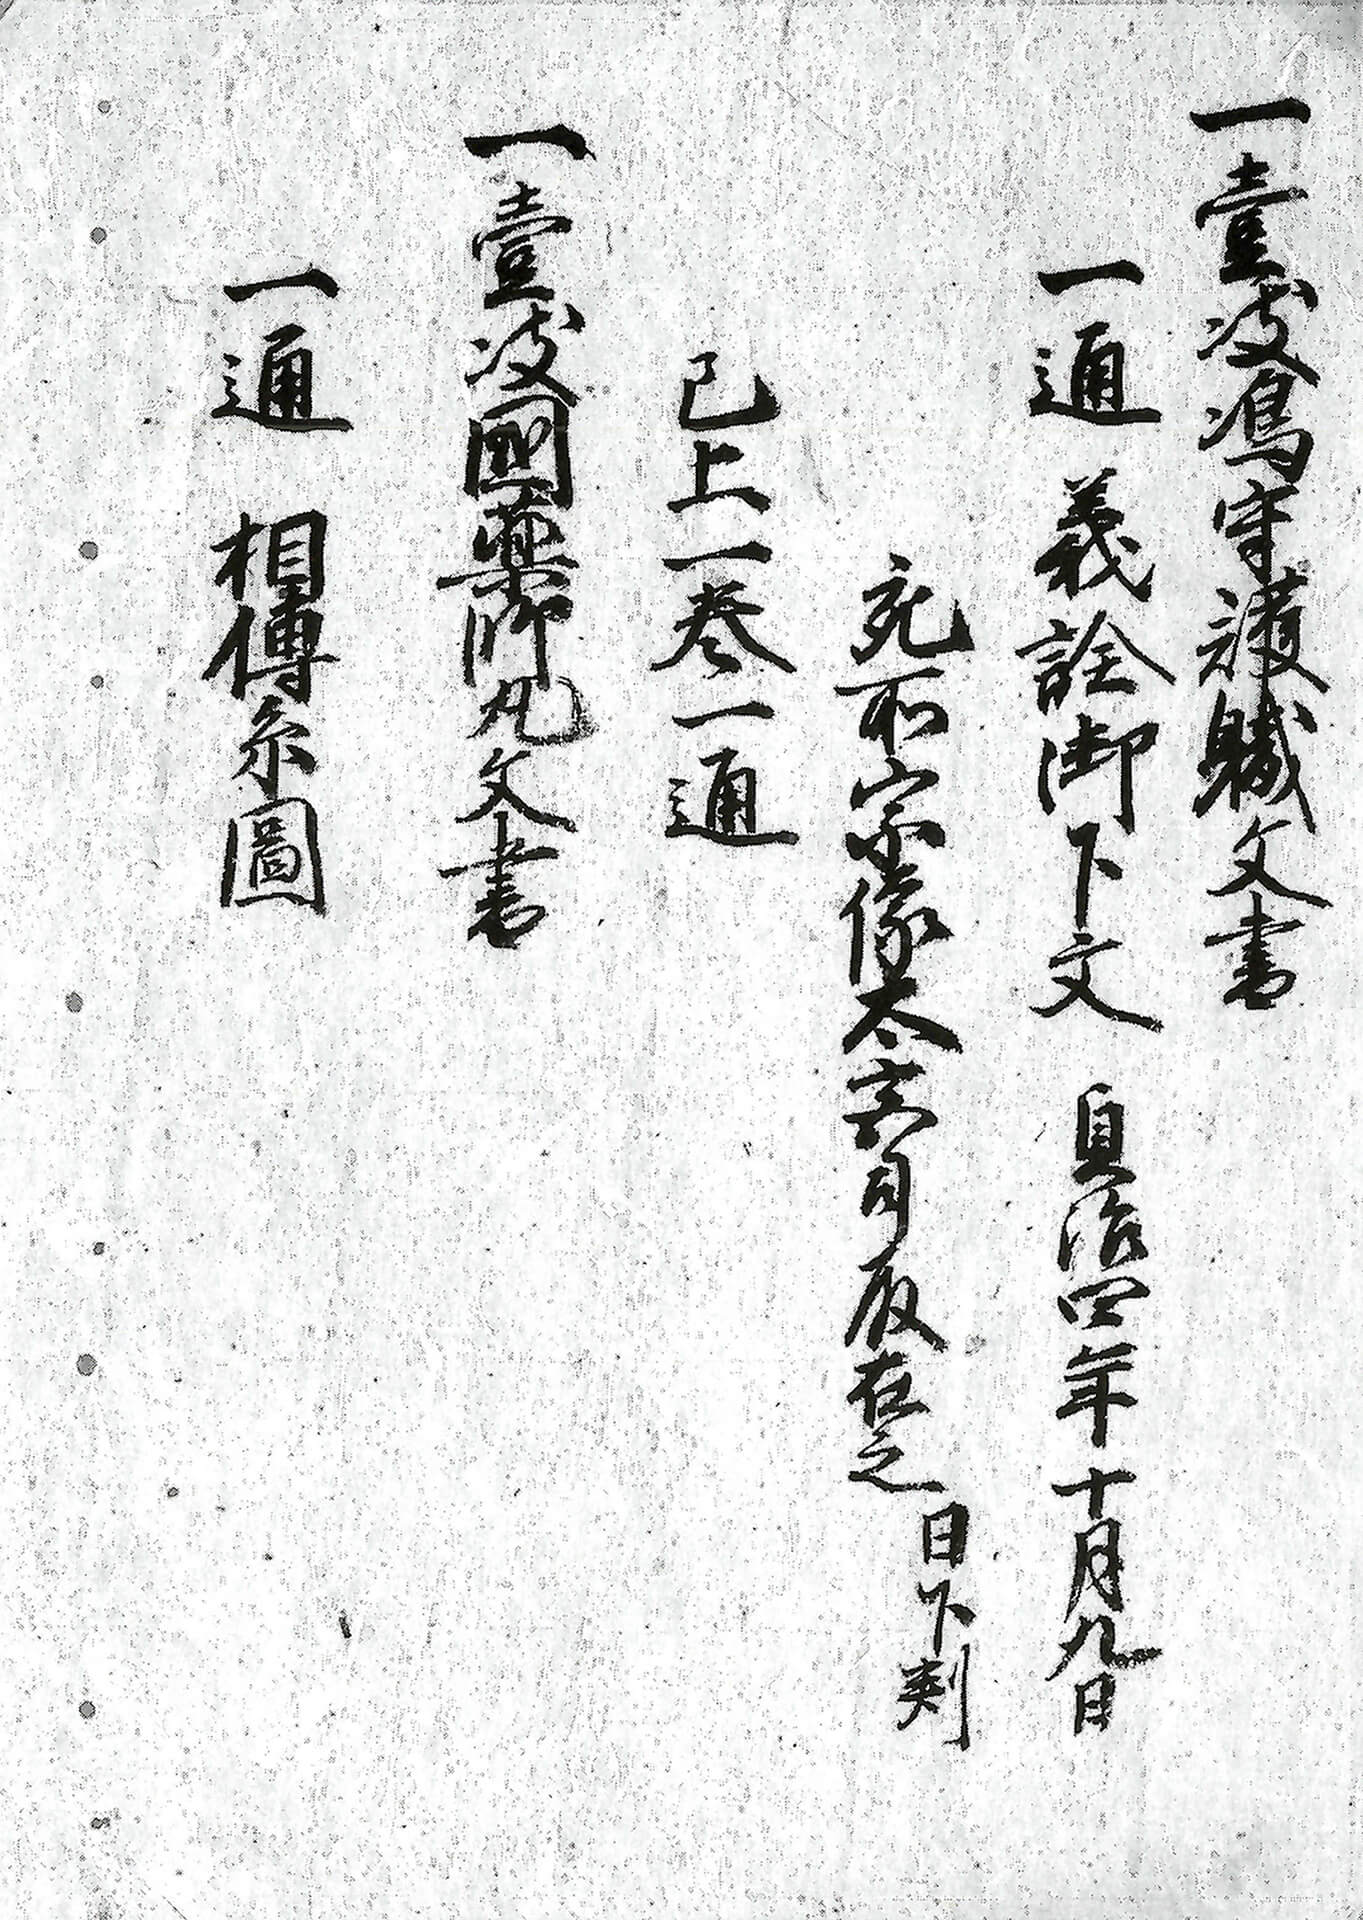 一壹岐嶋守護職文書
一通 義詮御下文 貞治四年十月九日
充所宗像大宮司殿在之 日下判
已上一巻一通
一壹岐國薬師丸文書
一通 相傳系圖